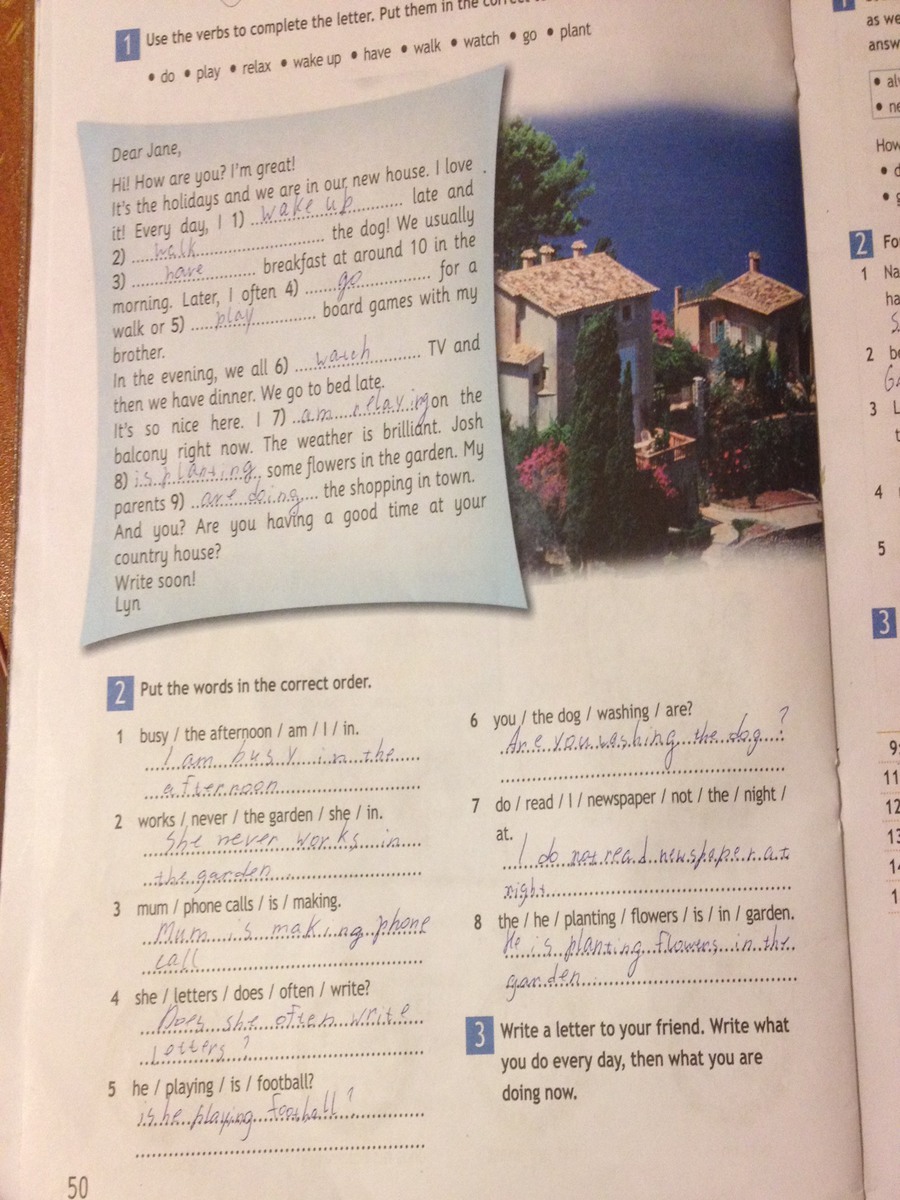 1 Use the verbs to complete the letter. Put them in the
• do • play • relax • wake up • have • walk • watch • go • plant
Dear Jane,
Hi! How are you? I'm great!
It's the holidays and we are in our new house. I love
it! Every day, I 1) wake up late and
2) walk the dog! We usually
3) have breakfast at around 10 in the
morning. Later, I often 4) go for a
walk or 5) play board games with my
brother.
In the evening, we all 6) watch TV and
then we have dinner. We go to bed late.
It's so nice here. I 7) am relaxing on the
balcony right now. The weather is brilliant. Josh
8) is planting some flowers in the garden. My
parents 9) are doing the shopping in town.
And you? Are you having a good time at your
country house?
Write soon!
Lyn
2 Put the words in the correct order.
1 busy / the afternoon / am / I / in.
I am busy in the
afternoon
2 works / never / the garden / she / in.
She never works in
the garden
3 mum / phone calls / is / making.
Mum is making phone
call
4 she / letters / does / often / write?
Does she often write
letters?
5 he / playing / is / football?
is he playing football?
6 you / the dog / washing / are?
Are you washing the dog?
7 do / read / I / newspaper / not / the / night /
at.
I do not read newspaper at
night
8 the / he / planting / flowers / is / in / garden.
He is planting flowers in the
garden
3 Write a letter to your friend. Write what
you do every day, then what you are
doing now.
50
1
as we
answ
• al
• ne
How
• d
• g
2 Fo
1 Na
ha
2 be
3 L
t
4
5
3
9
11
12
13
14
1